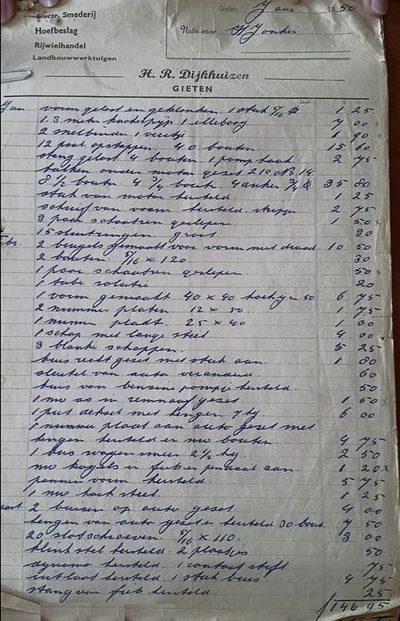 Electr. Smederij
Hoefbeslag
Rijwielhandel
Landbouwwerktuigen
Gieten, Jan 1950
Nota voor H Jonker
H. R. Dijkhuizen
GIETEN
Jan vorm gelast en geklonken. 1 stuk 5/16 1 25
1.3 meter kachelpijp 1 elleboog 7 00
2 smelbinder 1 1 90
12 paar opstappen 40 bouten 15 60
stang gelast 4 bouten 1 pomp haak 2 75
balken onder motor gezet 210 14
8 1/2 bouten 4 1/4 bout 35 80
stuk van motor hersteld 1 25
schijf van vorm hersteld. 2 75
3 paar schaatsen geslepen 1 50
15 sluitringen groot 30
2 beugels gemaakt voor vorm met draad 10 50
2 bouten 5/16 x 120 30
1 paar schaatsen geslepen 50
1 tube solutie 20
1 vorm gemaakt 40 x 40 hoekijzer 50 6 75
2 nummer platen. 12 x 50. 1 75
1 numm pladt 25 x 40 1 00
1 schop met lange steel 4 00
3 blanke schoppen. 5 25
buis recht gezet met stuk aan. 1 80
sleutel van auto veranderd 60
buis van benzine pompje hersteld. 50
1 nw as in remnaaf gezet 1 50
1 put deksel met ringen 7 kg. 6 00
1 nummer plaat aan auto gezet met
hersteld en nw bouten. 4 75
1 bus wagensmeer 2 1/2 kg. 2 50
nw kogels in fiets en pedaal aan. 1 20
pannen vorm hersteld. 5 75
1 nw hark steel. 1 25
2 buizen op auto gezet 4 00
van auto gezet en hersteld 30 bout 7 50
20 slotschroeven. 5/16 x 110. 3 00
hersteld. 2 plaatjes 50
dynamo hersteld. 1 contact stift 75
inlaat hersteld. 1 stuk buis 4 75
stang van fiets hersteld. 25
146 45